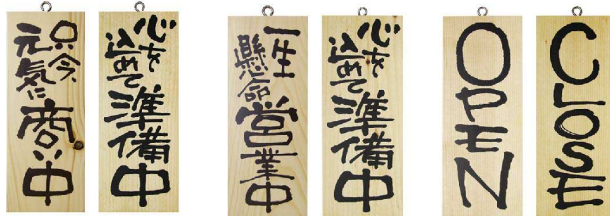 只今、
元気に
商い中
心を
込めて
準備中
一生
懸命
営業中
心を
込めて
準備中
OPEN
CLOSE